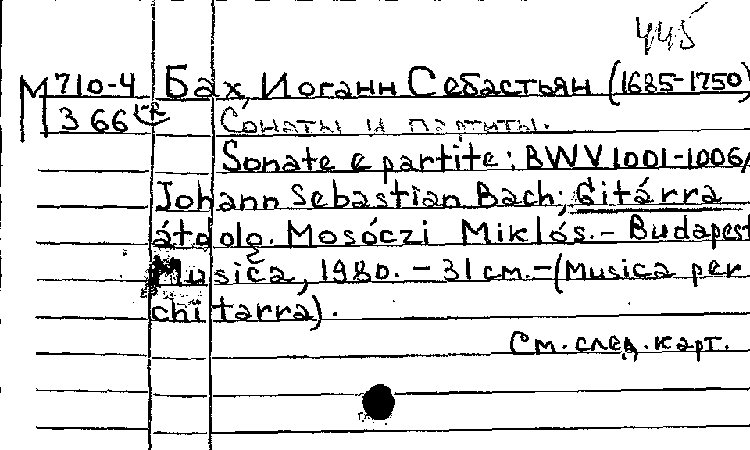 445
М710-4 Бах, Иоганн Себастьян (1685-1750)
366 Сонаты и партиты.
Sonate e partite: BWV 1001-1006/
Johann Sebastian Bach; Gitárra
átdolg. Mosóczi Miklós. - Budapest
Musica, 1980. - 31 см. - (Musica per
chitarra).
См. след. карт.